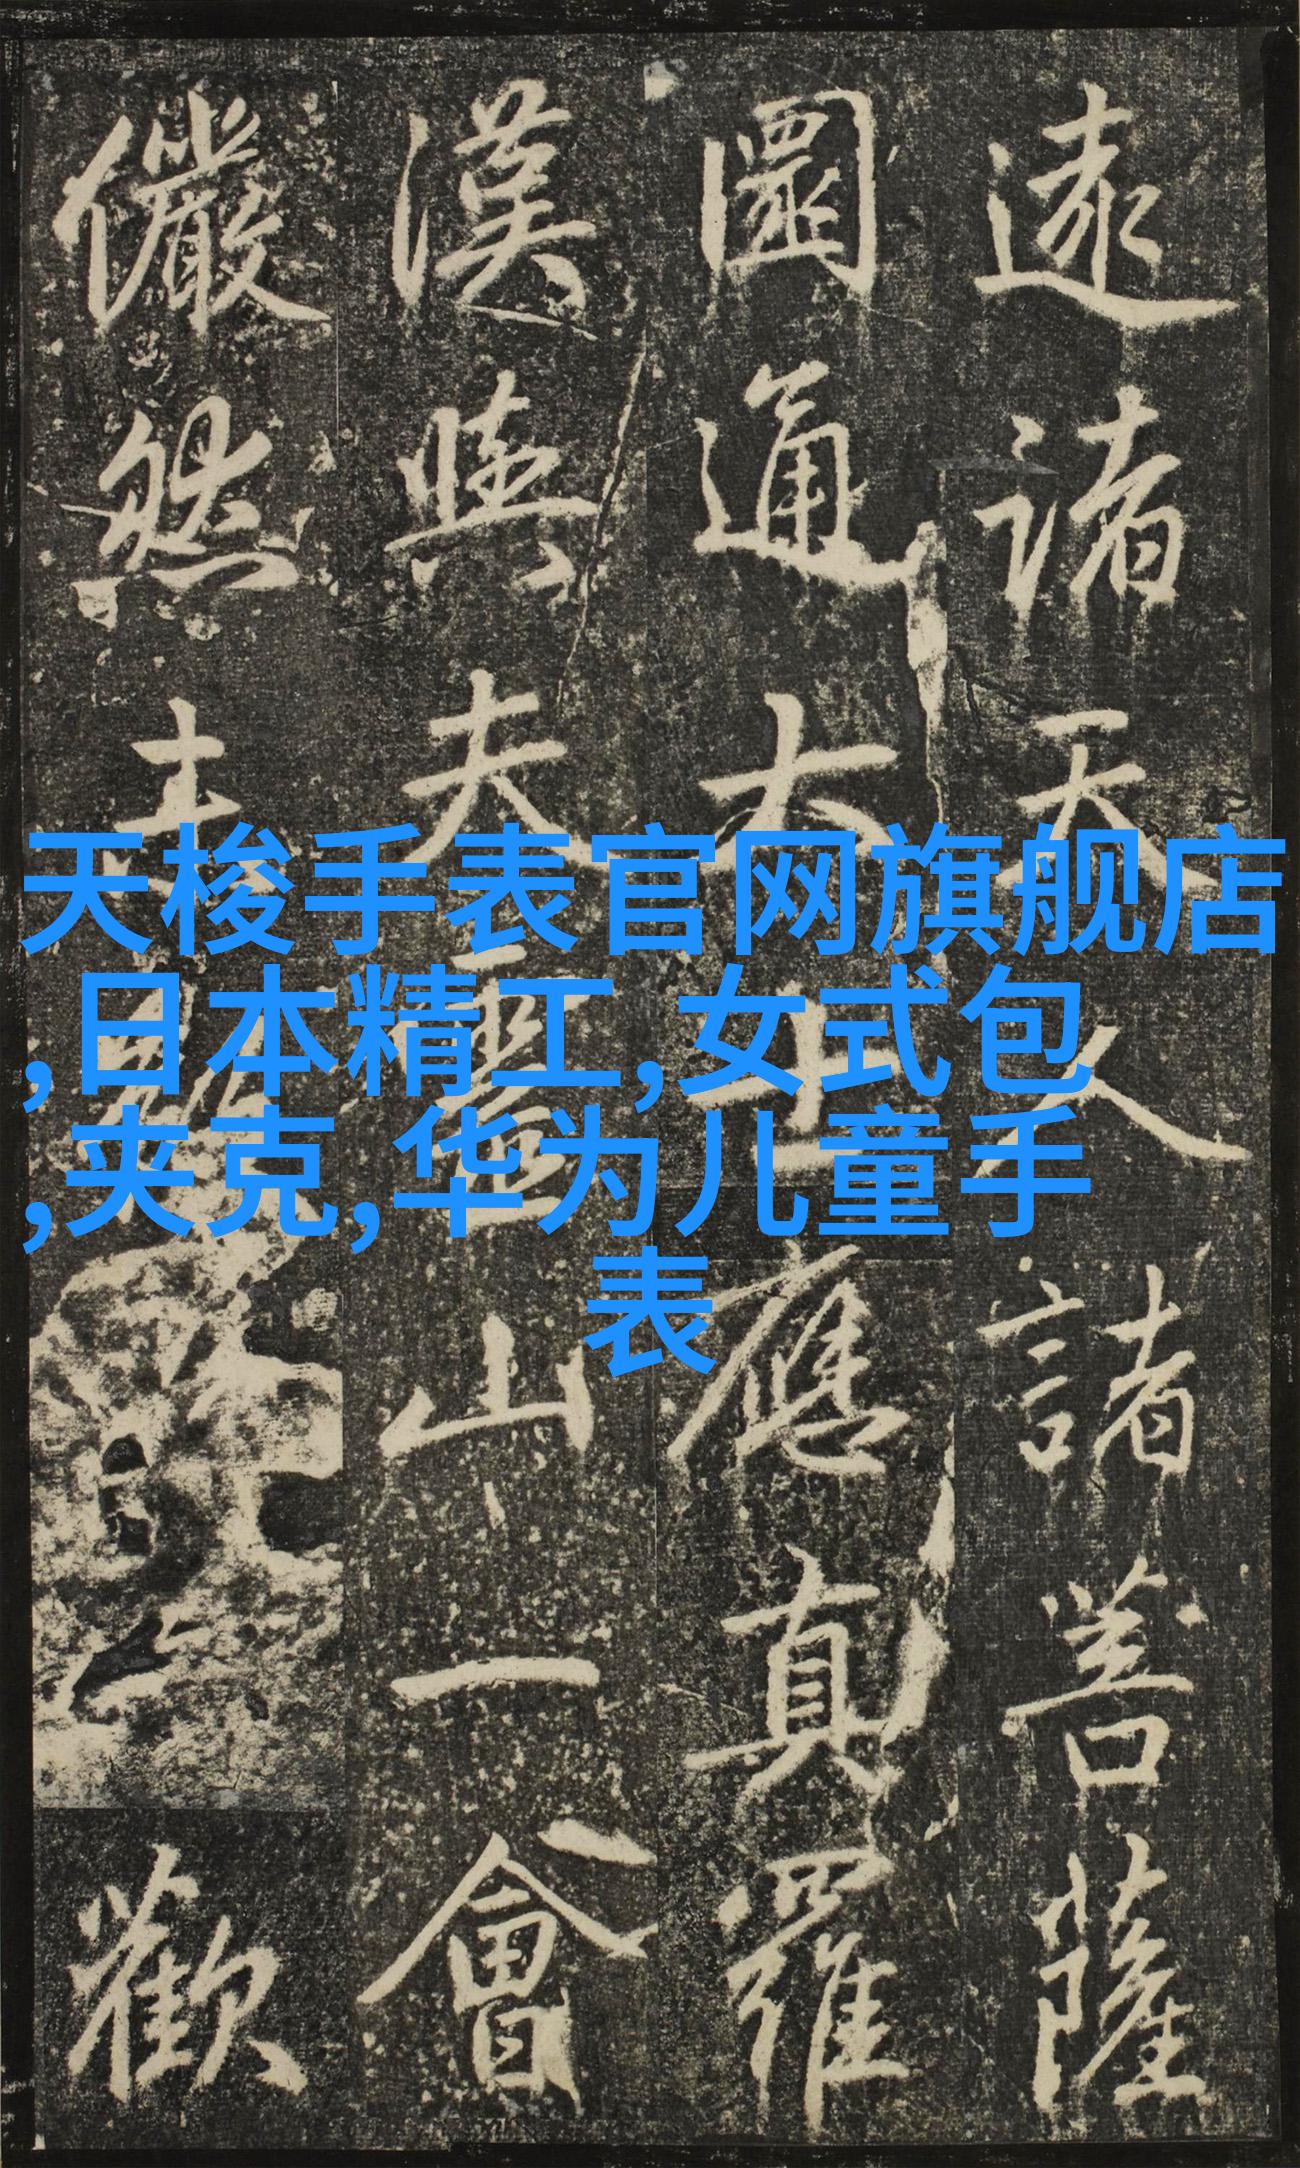 天梭手表官网旗舰店
,日本精工,女式包
,夹克,华为儿童手
表
遠諸天人諸菩薩
圓通大士應真羅
漢與夫靈山一會
儼然未歡